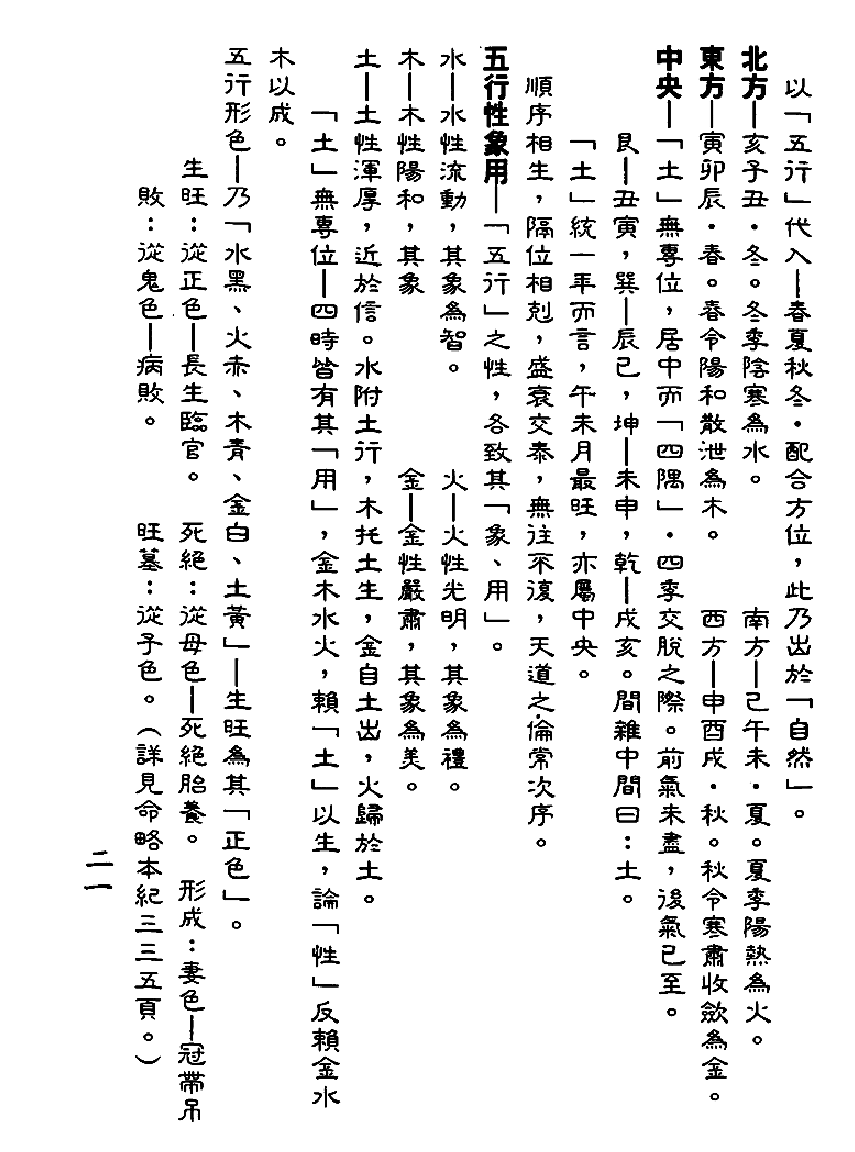 以「五行」代入—春夏秋冬·配合方位，此乃出於「自然」。
北方—亥子丑·冬。冬季陰寒為水。　南方—巳午未·夏。夏季陽熱為火。
東方—寅卯辰·春。春令陽和散泄為木。　西方—申酉戌·秋。秋令寒肅收歛為金。
中央—「土」無專位，居中而「四隅」·四季交脫之際。前氣未盡，後氣已至。
艮—丑寅，巽—辰巳，坤—未申，乾—戌亥。間雜中間曰：土。
「土」統一年而言，午未月最旺，亦屬中央。
順序相生，隔位相剋，盛衰交泰，無往不復，天道之倫常次序。
五行性象用—「五行」之性，各致其「象、用」。
水—水性流動，其象為智。　火—火性光明，其象為禮。
木—木性陽和，其象　金—金性嚴肅，其象為美。
土—土性渾厚，近於信。水附土行，木托土生，金自土出，火歸於土。
「土」無專位—四時皆有其「用」，金木水火，賴「土」以生，論「性」反賴金水
木以成。
五行形色—乃「水黑、火赤、木青、金白、土黃」—生旺為其「正色」。
生旺：從正色—長生臨官。　死絕：從母色—死絕胎養。　形成：妻色—冠帶吊
敗：從鬼色—病敗。　旺墓：從子色。（詳見命略本紀三三五頁。）
二一